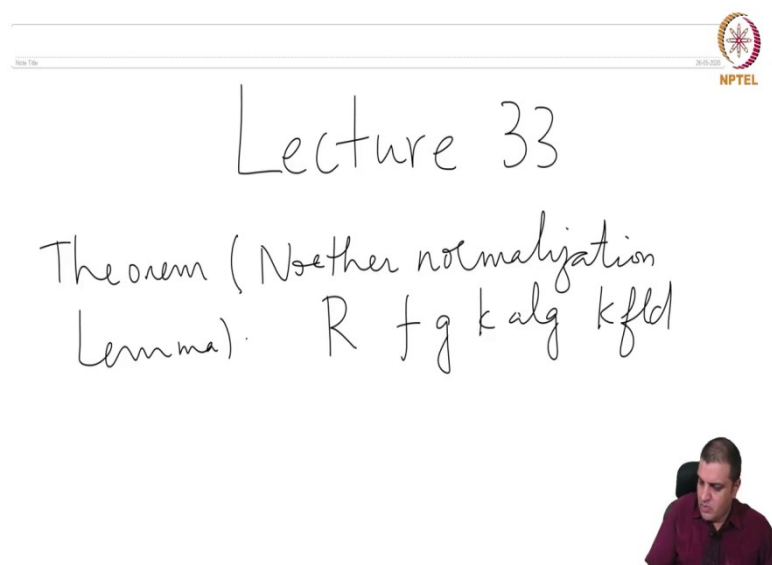 Note Title
26-05-2020
NPTEL
Lecture 33
Theorem (Noether normalization
Lemma). R f g k alg k fld